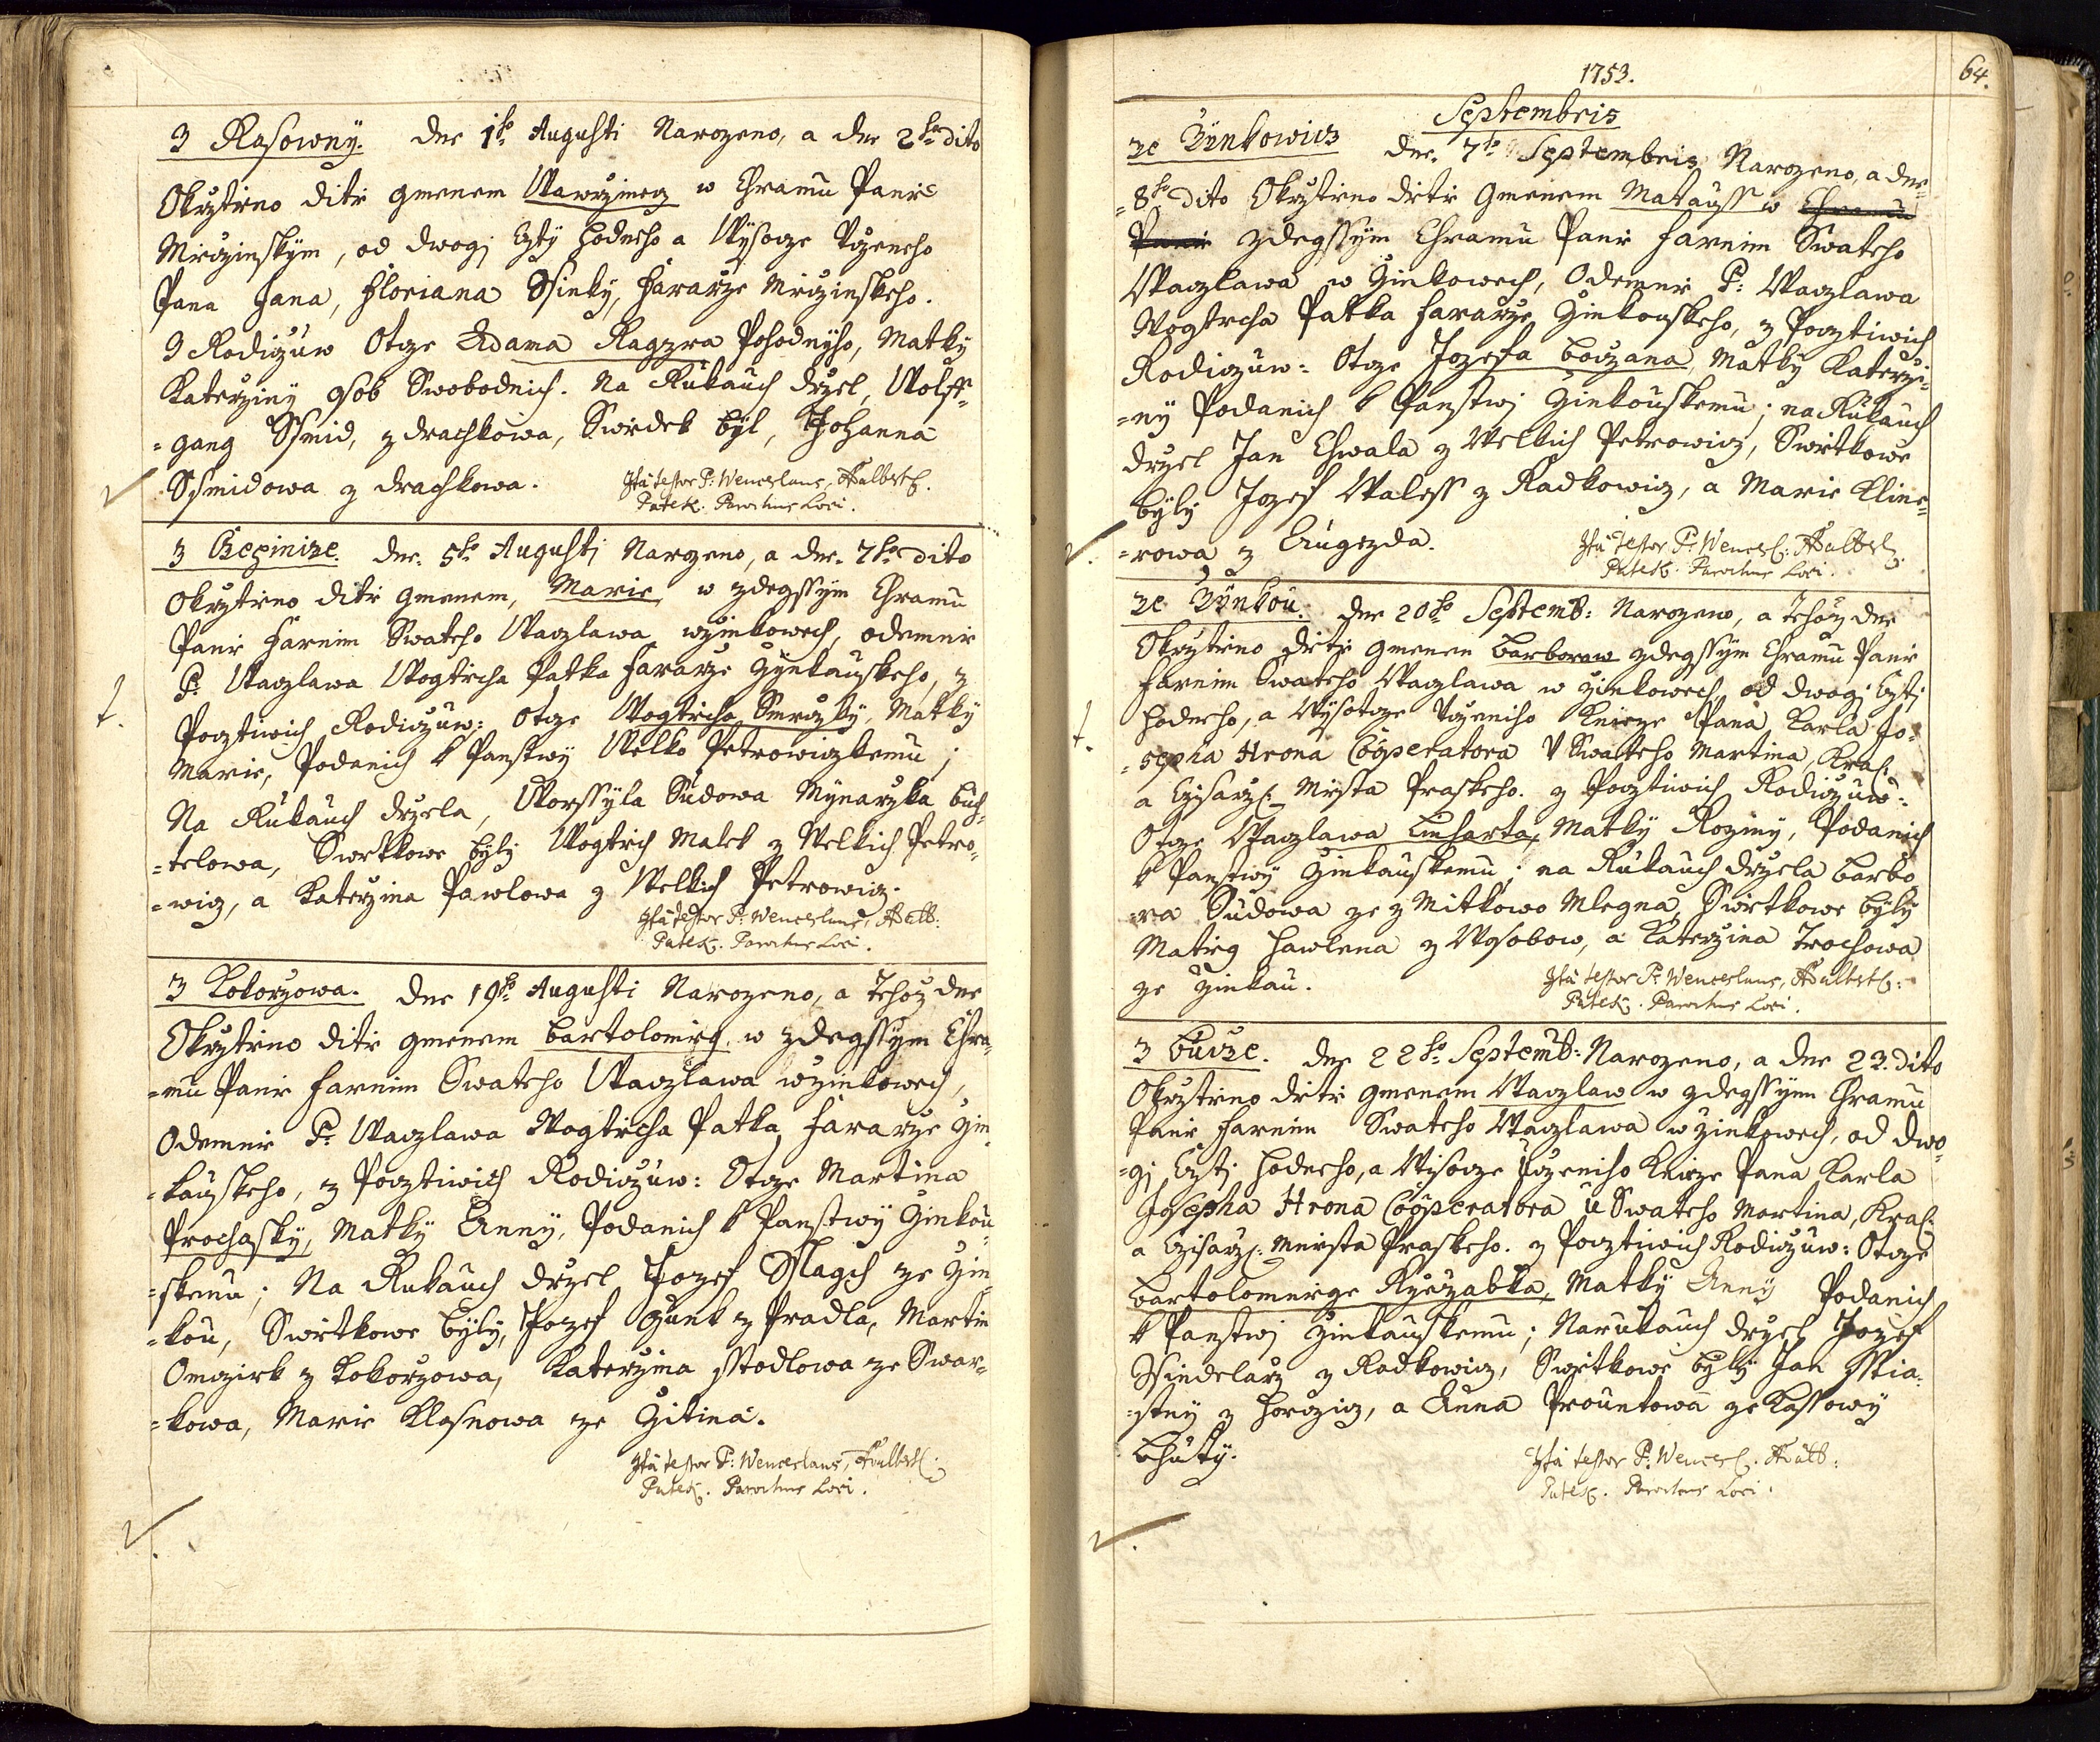 3 Rasowny. dne 1ho Augusti Narozeno, a dne 2ho dito
Okrztieno ditie gmenem Wawrzinecz w Chramu Panie
Mieczinskym, od dwogj Czty hodneho a Wysocze Vczeneho
Pana Jana, Floriana Ssinky, Fararze Mieczinskeho.
Z Rodiczuw Otcze Adama Pohodnyho, Matky
Katerziny osob Swobodnich. Na Rukauch drzel, Wolff=
=gang Ssmid, z drachkowa, Swedek byl, Johanna
Ssmidowa z drachkowa. Ita testor P: Wenceslaus, Adalbert
Patek. Parochus Loci.
3 Bezinize. dne 5ho Augusti Narozeno, a dne 7ho dito
Okrztieno ditie gmenem, Marie w zdegssym Chramu
Panie Farnim Swateho Waczlawa wzinkowech, odemnie
P: Waczlawa Wogtiecha Patka Fararze Zynkauskeho, z
t.
Pocztiwich Rodiczuw: Otcze Wogtiecha Smrczky, Matky
Marie, Podanich k Panstwy Welko Petrowiczkemu;
Na Rukauch drzela, Worssyla Sudowa Mynarzka buch=
=telowa, Swietkowe byly Wogtiech Malek z Welkich Petro=
=wicz, a Katerzina Pawlowa z Welkich Petrowicz.
Ita testor P: Wenceslaus, Adalb:
Patek. Parochus Loci.
3 Kokorzowa. dne 19ho Augusti Narozeno, a Tehoz dne
Okrztieno ditie gmenem Bartolomieg w zdegssym Chra=
=mu Panie Farnim Swateho Waczlawa wzinkowech,
Odemnie P: Waczlawa Wogtiecha Patka Fararze Zin=
=kauskeho, z Pocztiwich Rodiczuw: Otcze Martina
Prochasky, Matky Anny, Podanich k Panstwy Zinkou=
=skemu; Na Rukauch drzel Jozef Sslagch ze Zin=
=kou, Swietkowe byly, Jozef Zunt z Pradla, Martin
Omczirk z Kokorzowa, Katerzina Sstodlowa ze Swar=
=kowa, Marie Klasnowa ze Zitina.
Ita testor P: Wenceslaus, Adalbert
Patek. Parochus Loci.
1753.
64.
Septembris
ze Zynkowicz dne 7ho Septembris Narozeno, a dne
=8ho dito Okrztieno ditie Gmenem Matauss w Chramu
Panie zdegssym Chramu Panie Farnim Swateho
Waczlawa w Zinkowech, Odemnie P: Waczlawa
Wogtiecha Patka Fararze Zinkouskeho, z Pocztiwich
Rodiczuw: Otcze Jozefa Boczana, Matky Katerzi=
=ny Podanich k Panstwj Zinkouskemu; na Rukauch
drzel Jan Chwala z Welkich Petrowicz, Swietkowe
byly Jozef Waless z Radkowicz, a Marie Kline=
=rowa z Augezda. Ita testor P: Wencesl: Adalbert
Patek. Parochus Loci.
ze Zynkou. dne 20ho Septemb: Narozeno, a Tehoz dne
Okrztieno ditie gmenem Barboraw zdegssym Chramu Panie
Farnim Swateho Waczlawa w zinkowech, od dwogj Cztj
t.
hodneho, a Wysocze Vczeniho Knieze Pana Karla Jo=
=sepha Hrona Cooperatora V Swateho Martina, Kral:
a Czisarz: Miesta Praskeho. z Pocztiwich Rodiczuw:
Otcze Waczlawa Linharta, Matky Roziny, Podanich
k Panstwy Zinkauskemu; na Rukauch drzela Barbo
=ra Sudowa ze z Mitkowo Mlegna, Swietkowe byly
Matieg Hawlena z Wosobow, a Katerzina Trochowa
ze Zinkau. Ita testor P: Wenceslaus, Adalbert:
Patek. Parochus Loci.
3 Bucze. dne 22ho Septemb: Narozeno, a dne 23. dito
Okrztieno ditie gmenem Waczlaw w zdegssym Chramu
Panie Farnim Swateho Waczlawa w zinkowech, od dwo=
=gj Cztj hodneho, a Wisocze Vczeniho Knieze Pana Karla
Josepha Hrona Cooperatora u Swateho Martina, Kral:
a Czisarz: Miesta Praskeho. z Pocztiwich Rodiczuw: Otcze
Bartolomiege Ryczabka, Matky Anny Podanich
k Panstwj Zinkauskemu; Narukauch drzel Jozef
Ssindelarz z Radkowicz, Swietkowe byly Jan Sstia=
=stny z Horczicz, a Anna Prountowa ze Kassowy
Lhuty. Ita testor P: Wencesl. Adalb:
Patek. Parochus Loci.